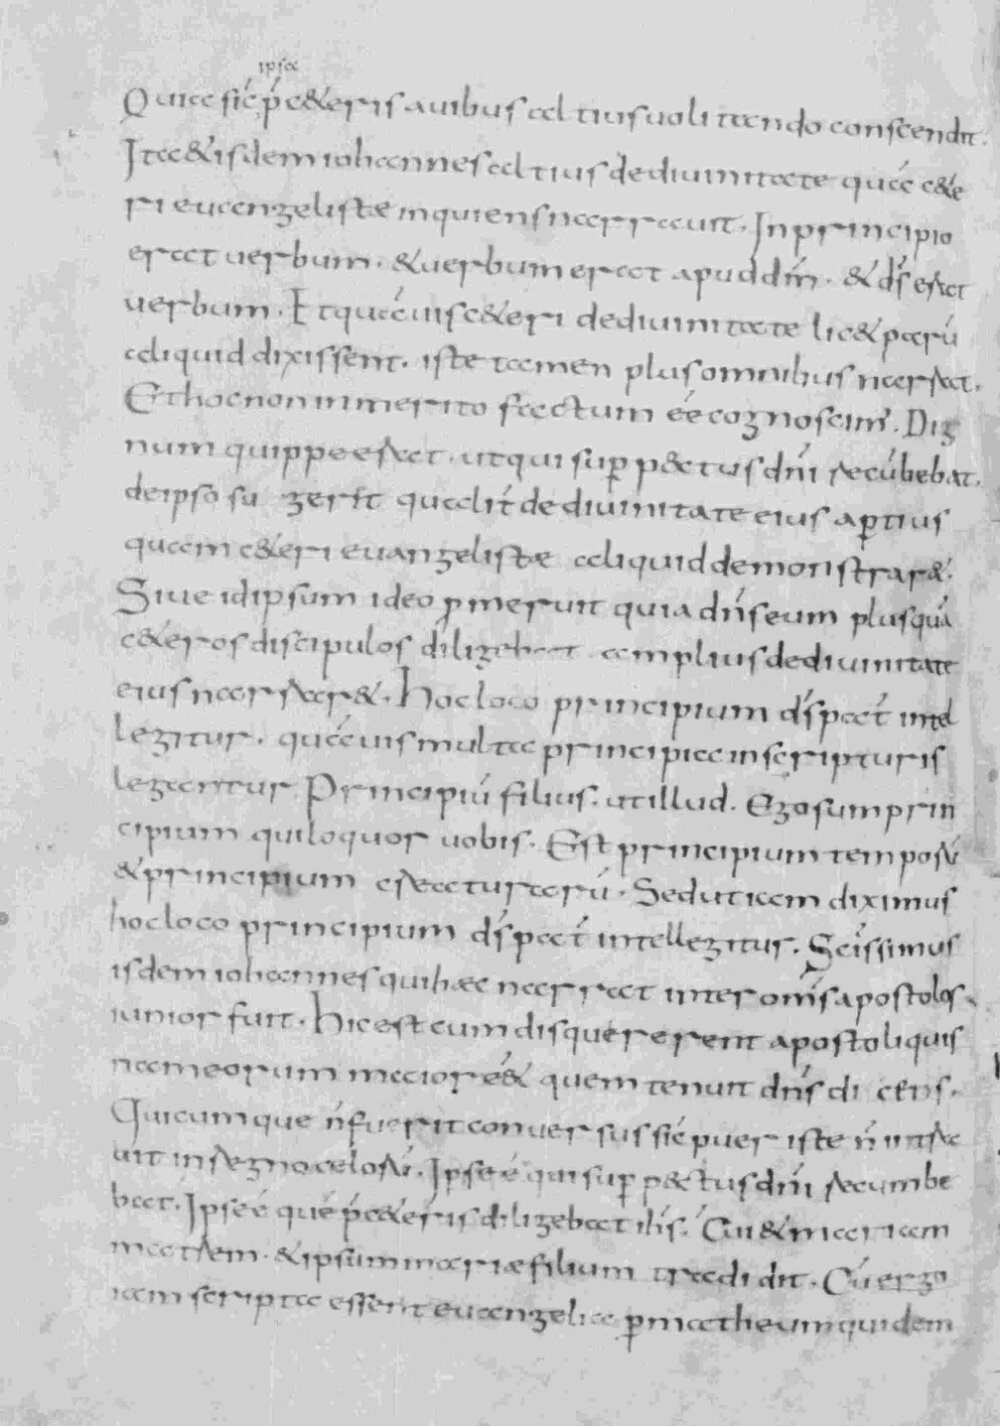 ipsa
Quia sic p̄ c&eris auibus altius uolitando conscendit.
Ita & isdem iohannes altius de diuinitate quā c&e
ri euangelistae inquiens narrauit. In principio
erat uerbum. & uerbum erat apud dm̄. & ds̄ erat
uerbum. Et quāuis c&eri de diuinitate lic& parū
aliquid dixissent. iste tamen plus omnibus narrat.
Et hoc non inmerito factum eē cognoscim'. Dig
num quippe erat. ut qui sup̱ p&tus dnī recūbebat.
de ipso su gerit qualit̄ de diuinitate eius ap̱tius
quam c&eri euangelistae aliquid demonstrar&.
Siue id ipsum ideo p̱meruit quia dn̄s eum plus quā
c&eros discipulos diligebat amplius de diuinitate
eius narrar&. Hoc loco principium ds̄ pat̄ intel
legitur. quāuis multa principia in scripturis
legantur. Principiū filius. ut illud. Ego sum prin
cipium qui loquor uobis. Est principium temporū
& principium creaturarū. Sed ut iam diximus
hoc loco principium ds̄ pat̄ intellegitur. Scīssimus
isdem iohannes qui haec narrat inter oms̄ apostolos
iunior fuit. Hic est cum disquererent apostoli quis
nam eorum maior e&́ quem tenuit dn̄s di cens.
Quicumque n̄ fuerit conuersus sic̄ puer iste n̄ intra
uit in regno celorū. Ipse ē qui sup̱ p&tus dnī recumbe
bat. Ipse ē quē p̄ c&eris diligebat ih̄s. Cui & mariam
matrem. & ipsum mariae filium tradidit. Cū ergo
iam scripta essent euangelia p̱ matheum quidem